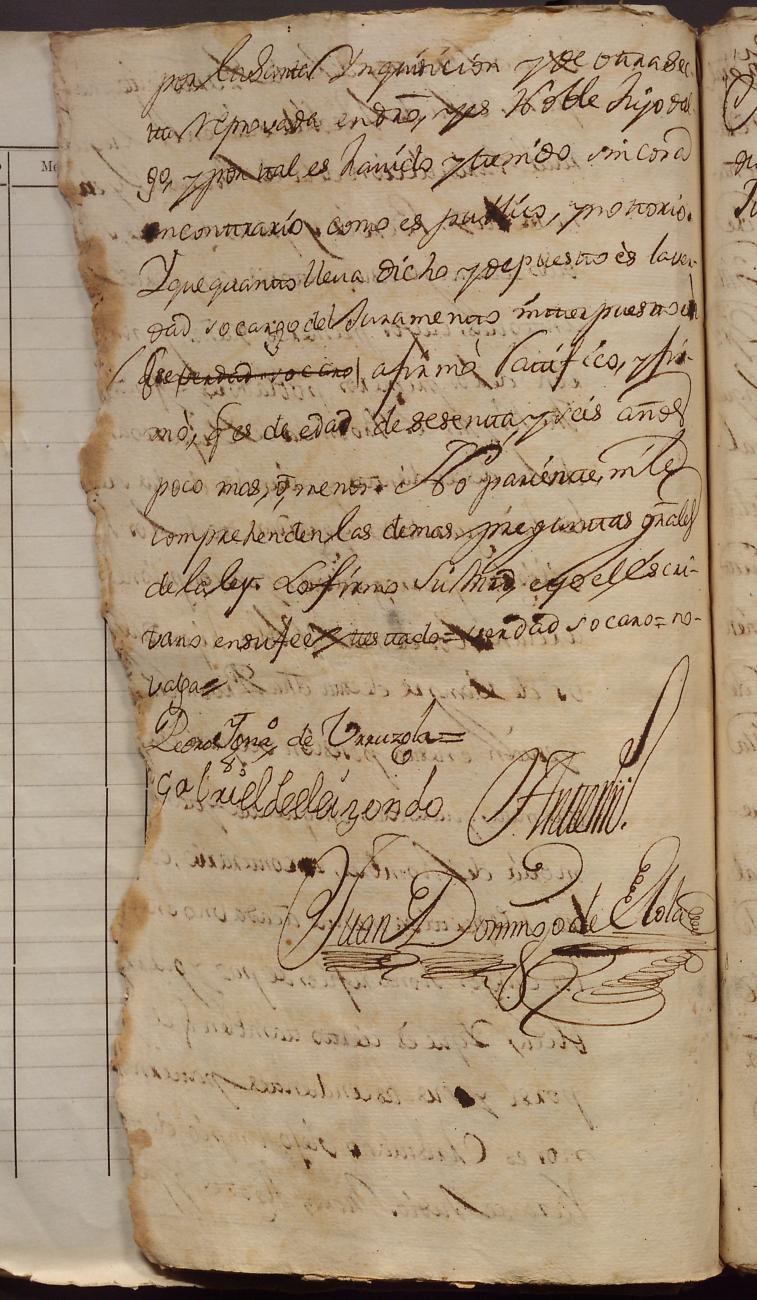 por la Santa Ynquisicion y de otra sec-
ta reprovada en dro, y es Noble hijo dal
go, y por tal es havido y tenido sin cosa
encontrario, como es publico, y nottorio.
Y que quanto lleva dicho y depuesto es la ver-
dad so cargo del Juramento interpuesto en
que verdad so caro, afirmó, ratificó, y fir-
mó, q es de edad de sesenta y seis años
poco mas, ó, menos. No pariente, ni le
comprehenden las demas preguntas gnales
de la ley. Lo firmo Su Mrd, e yo el escri-
vano en su fee testado = verdad so caro = no-
valga =
Pedro Ign.º de Urruzola =
Gabriel de elizondo
Antemi.
Juan Domingo de Elola